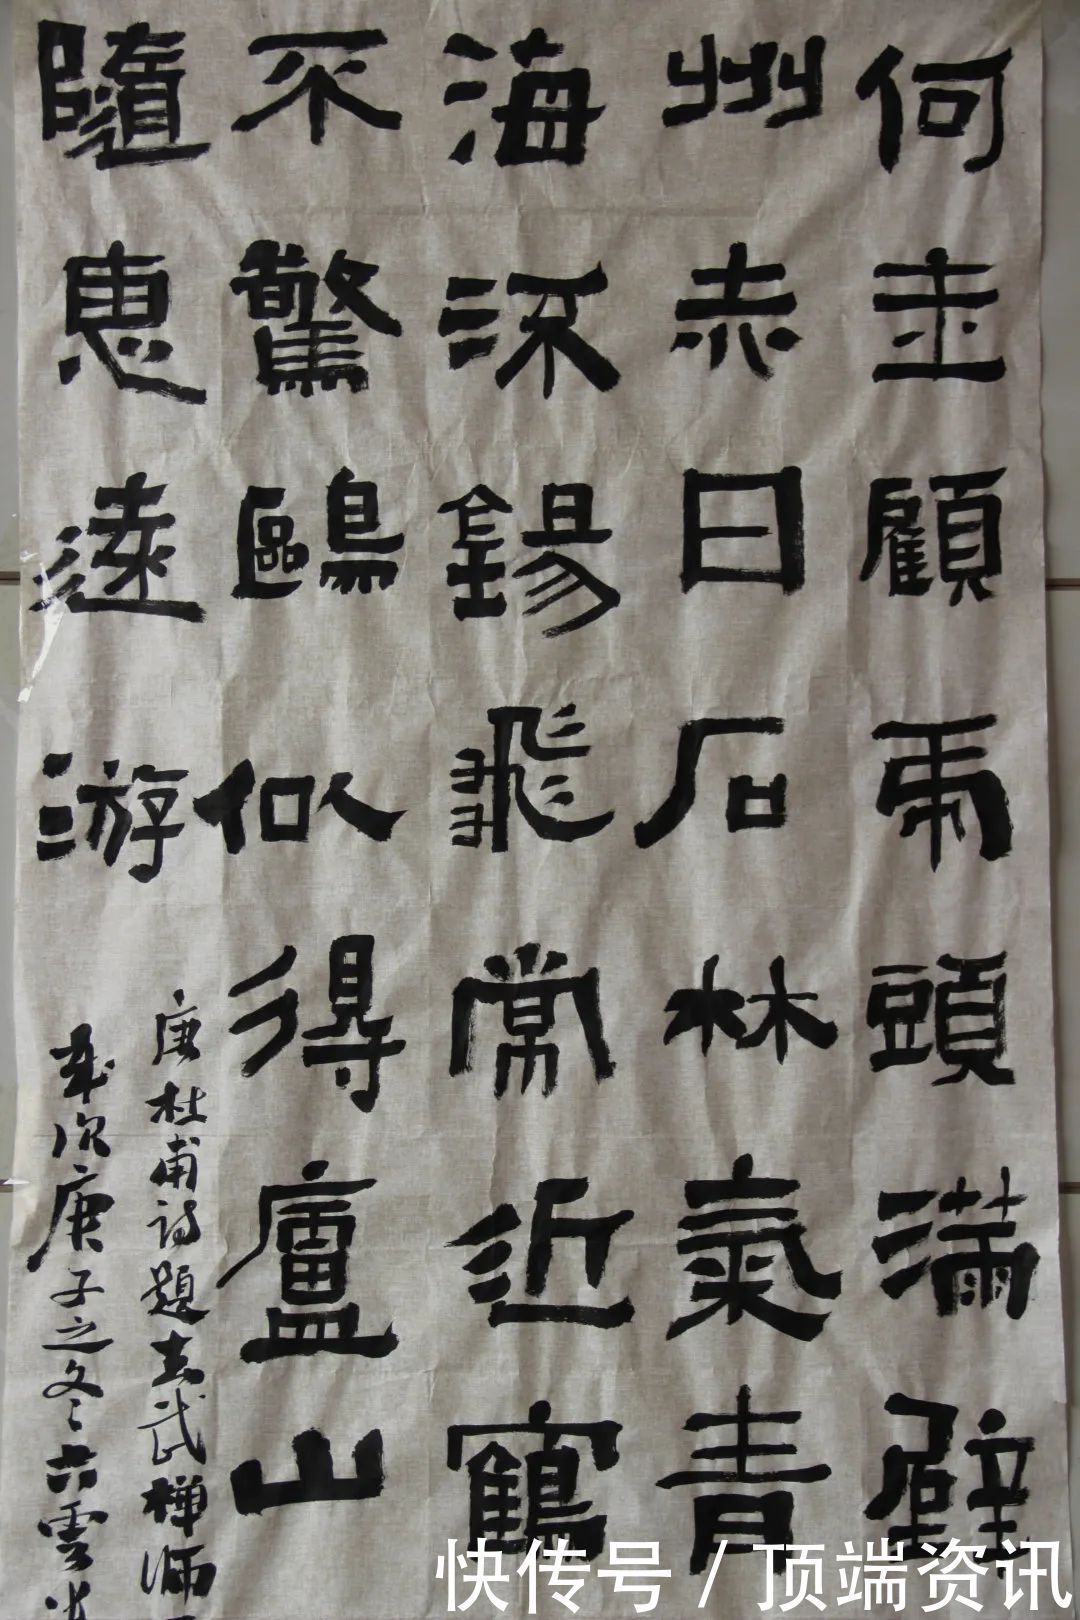 何年顧虎頭滿壁
州赤日石林氣青
海流錫飛常近鶴
不驚鷗似得廬山
隨惠遠游
唐杜甫詩題玄武禪師
歲次庚子之冬六雲
快传号 / 顶端资讯